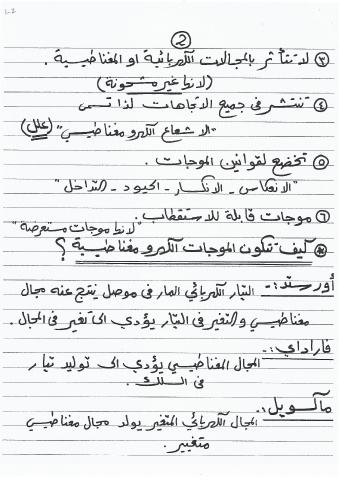 2
③ لا تتأثر بالمجالات الكهربائية او المغناطيسية .
(لانها غير مشحونة)
④ تنتشر في جميع الاتجاهات لذا تسمى
"الاشعاع الكهرومغناطيسي" (علل)
⑤ تخضع لقوانين الموجات .
"الانعكاس - الانكسار - الحيود - التداخل"
⑥ موجات قابلة للاستقطاب .
"لانها موجات مستعرضة"
* كيف تتكون الموجات الكهرومغناطيسية ؟
أورستد :- التيار الكهربائي المار في موصل ينتج عنه مجال
مغناطيسي والتغير في التيار يؤدي الى تغير في المجال .
فاراداي :- المجال المغناطيسي يؤدي الى توليد تيار
في السلك .
ماكسويل :- المجال الكهربائي المتغير يولد مجال مغناطيسي
متغير .